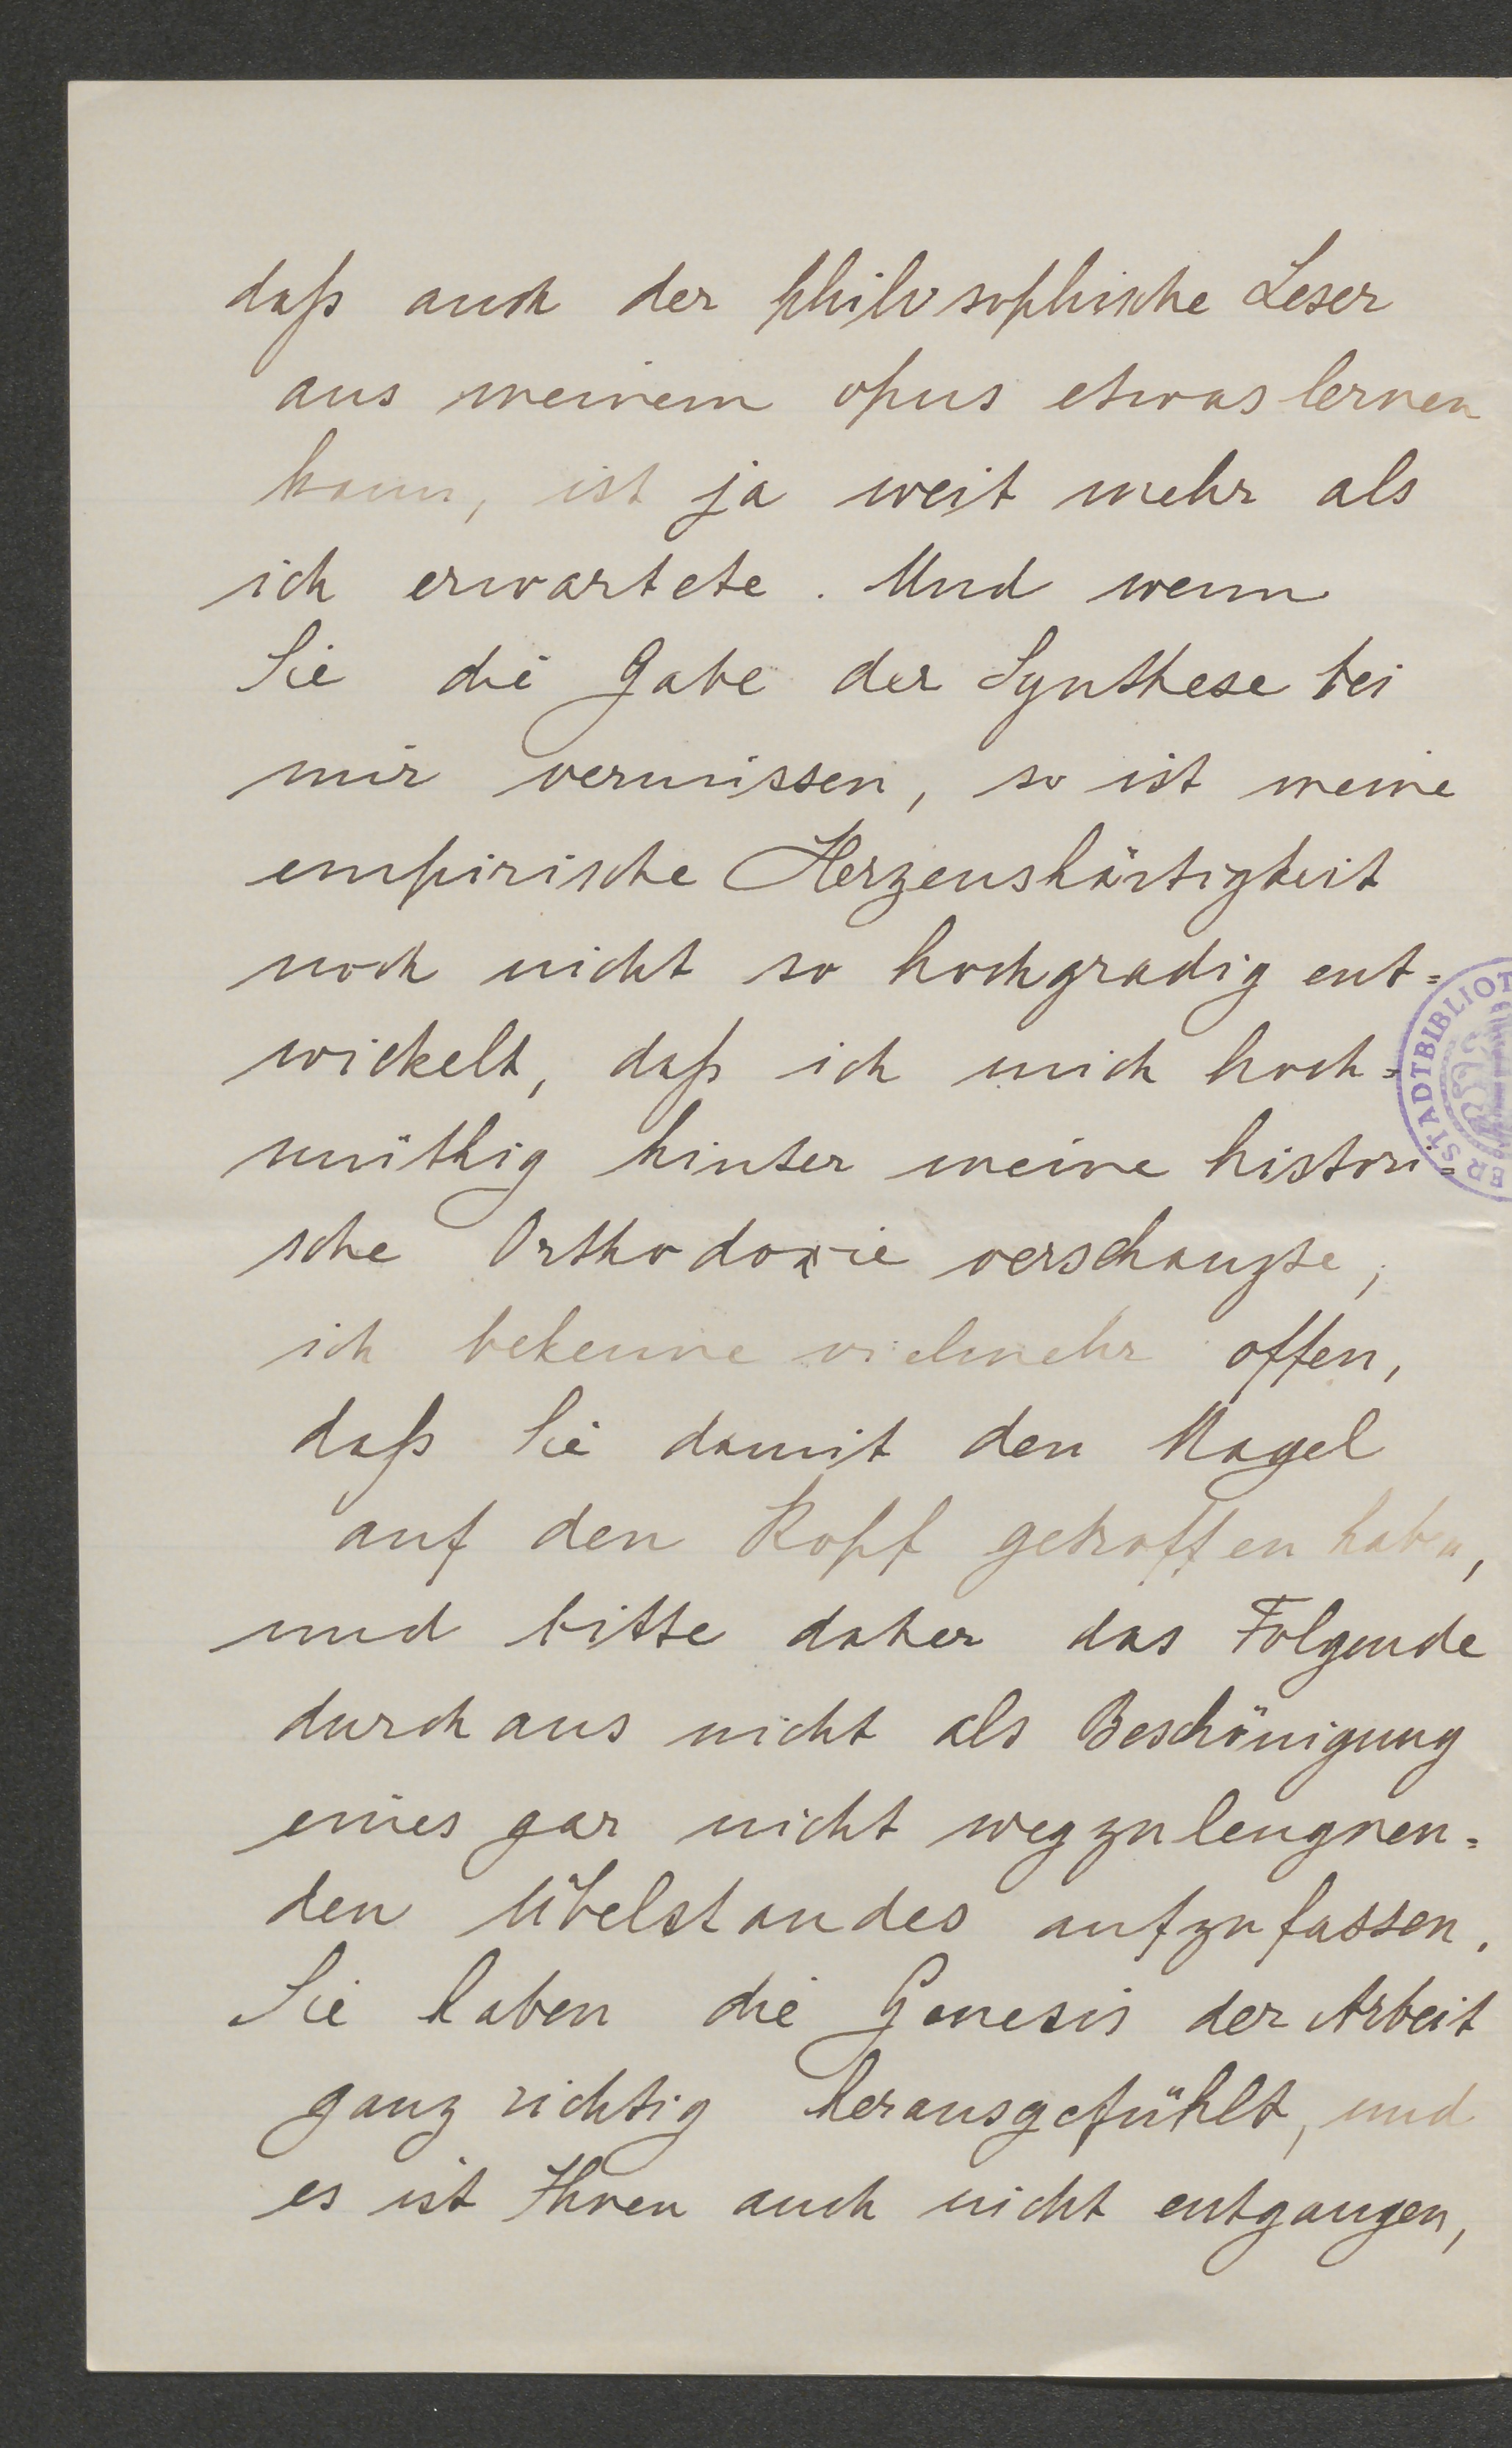 daß auch der philosophische Leser
aus meinem opus etwas lernen
kann, ist ja weit mehr als
ich erwartete. Und wenn
Sie die Gabe der Synthese bei
mir vermissen, so ist meine
empirische Herzenshärtigkeit
noch nicht so hochgradig ent=
wickelt, daß ich mich hoch=
müthig hinter meine histori=
sche Orthodoxie verschanzte;
ich bekenne vielmehr offen,
daß Sie damit den Nagel
auf den Kopf getroffen haben,
und bitte daher das Folgende
durchaus nicht als Beschönigung
eines gar nicht wegzuleugnen=
den Übelstandes aufzufassen.
Sie haben die Genesis der Arbeit
ganz richtig herausgefühlt, und
es ist Ihnen auch nicht entgangen,
ERSTADTBIBLIOT